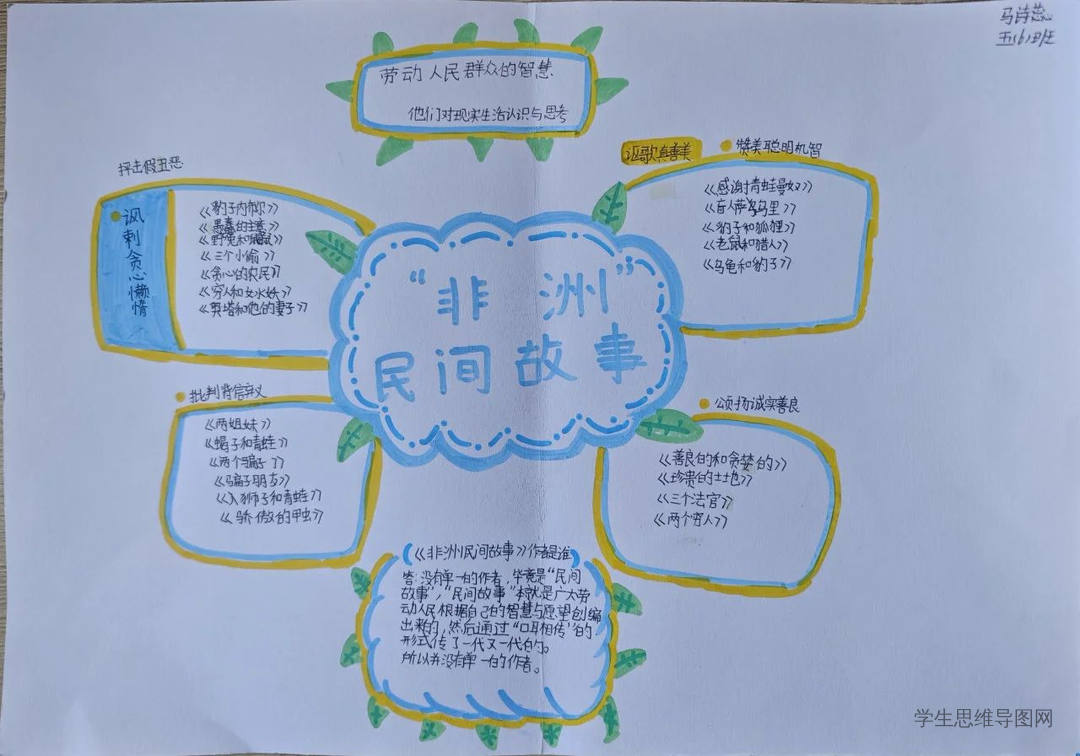 马诗蕊
五(6)班
劳动人民群众的智慧
他们对现实生活认识与思考
抨击假丑恶
讽刺贪心懒惰
《豹子内布尔》
《愚蠢的主意》
《野兔和
《三个小偷》
《贪心的农民》
《穷人和女水妖》
《奥塔和他的妻子》
讴歌真善美
赞美聪明机智
《感谢青蛙曼奴》
《盲人萨乌乌里》
《豹子和狐狸》
《老鼠和猎人》
《乌龟和豹子》
“非洲”
民间故事
批判背信弃义
《两姐妹》
《蝎子和青蛙》
《两个骗子》
《骗子朋友》
《人狮子和青蛙》
《骄傲的甲虫》
颂扬诚实善良
《善良的和贪婪的》
《珍贵的土地》
《三个法官》
《两个穷人》
(《非洲民间故事》作者是谁)
答:没有单一的作者,毕竟是“民间
故事”,“民间故事”本就是广大劳
动人民根据自己的智慧与愿望创编
出来的,然后通过“口耳相传”的
形式传了一代又一代的。
所以并没有单一的作者。
学生思维导图网